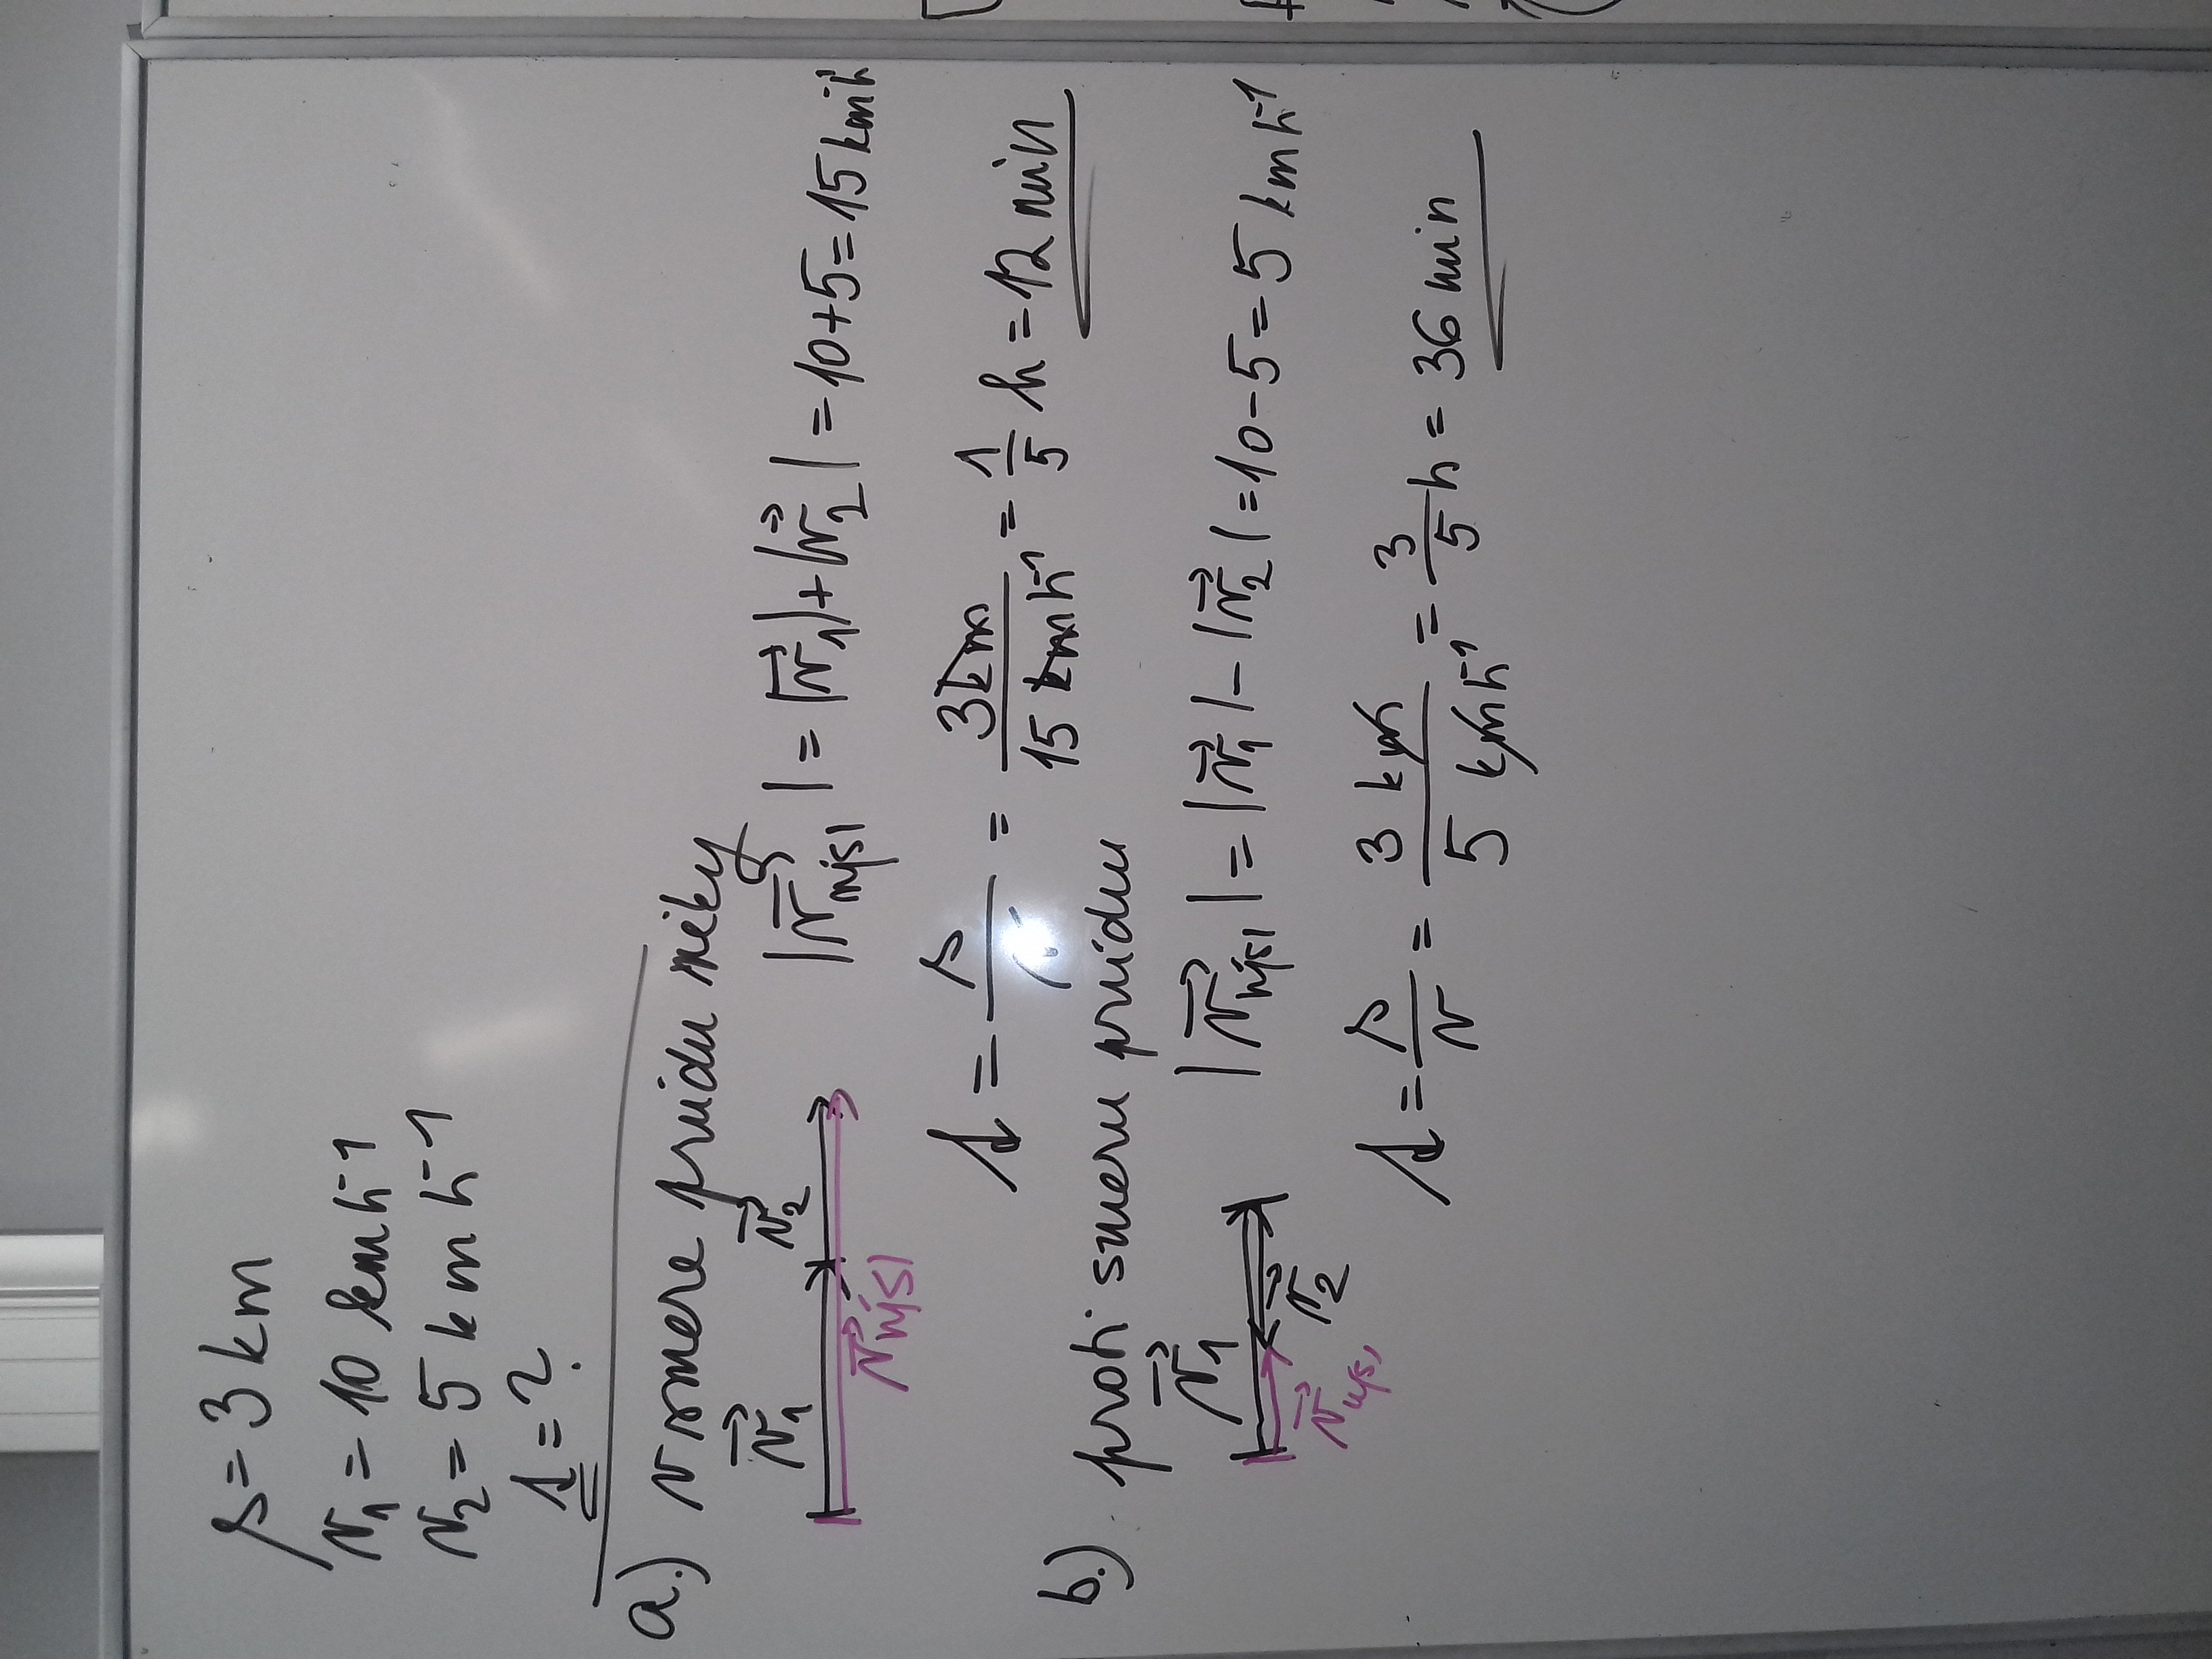 s = 3 km
v₁ = 10 kmh⁻¹
v₂ = 5 km h⁻¹
t = ?
a.) v smere prúdu rieky
v⃗₁ v⃗₂
v⃗výsl
|v⃗výsl| = |v⃗₁| + |v⃗₂| = 10 + 5 = 15 kmh⁻¹
t = s/v = 3km/15 kmh⁻¹ = 1/5 h = 12 min
b.) proti smeru prúdu
v⃗₁
v⃗₂
v⃗výs,
|v⃗výsl| = |v⃗₁| - |v⃗₂| = 10 - 5 = 5 kmh⁻¹
t = s/v = 3 km/5 kmh⁻¹ = 3/5 h = 36 min